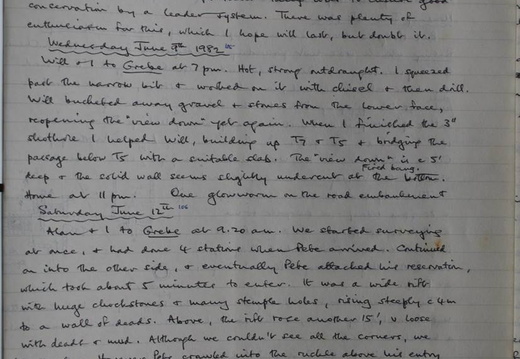 conservation by a leader system. There was plenty of
enthusiasm for this, which I hope will last, but doubt it.
Wednesday June 9th 1982
Will & I to Grebe at 7 pm. Hot, strong outdraught. I squeezed
past the narrow bit & worked on it with chisel & then drill.
Will bucketed away gravel & stones from the lower face,
reopening the "view down" yet again. When I finished the 3"
shothole I helped Will, building up T7 & T5 & bridging the
passage below T5 with a suitable slab. The "view down" is c 5'
deep & the solid wall seems slightly undercut at the bottom. Fired bang.
Home at 11 pm. One glowworm on the road embankment
Saturday June 12th 106
Alan & I to Grebe at 9.20 am. We started surveying
at once, & had done 4 stations when Pete arrived. Continued
on into the other side, & eventually Pete attached his reservation,
which took about 5 minutes to enter. It was a wide rift
with huge chockstones & many stemple holes, rising steeply c 4m
to a wall of deads. Above, the rift rose another 15', v loose
with deads & mud. Although we couldn't see all the corners, we
Pete crawled into the above his entry